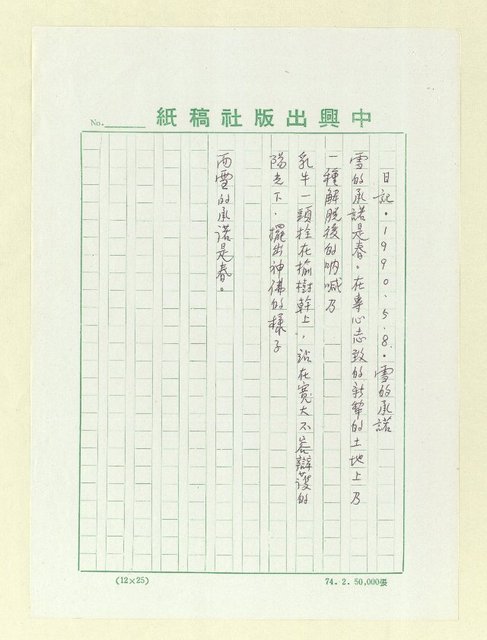 中興出版社稿紙
No.
日記·1990.5.8·雪的承諾
雪的承諾是春。在專心志致的新犂的土地上乃
一種解脫後的吶喊乃
乳牛一頭拴在榆樹幹上，站在寬大不容辯護的
陽光下·擺出神佛的樣子
而雪的承諾是春。
(12×25)
74. 2. 50,000張